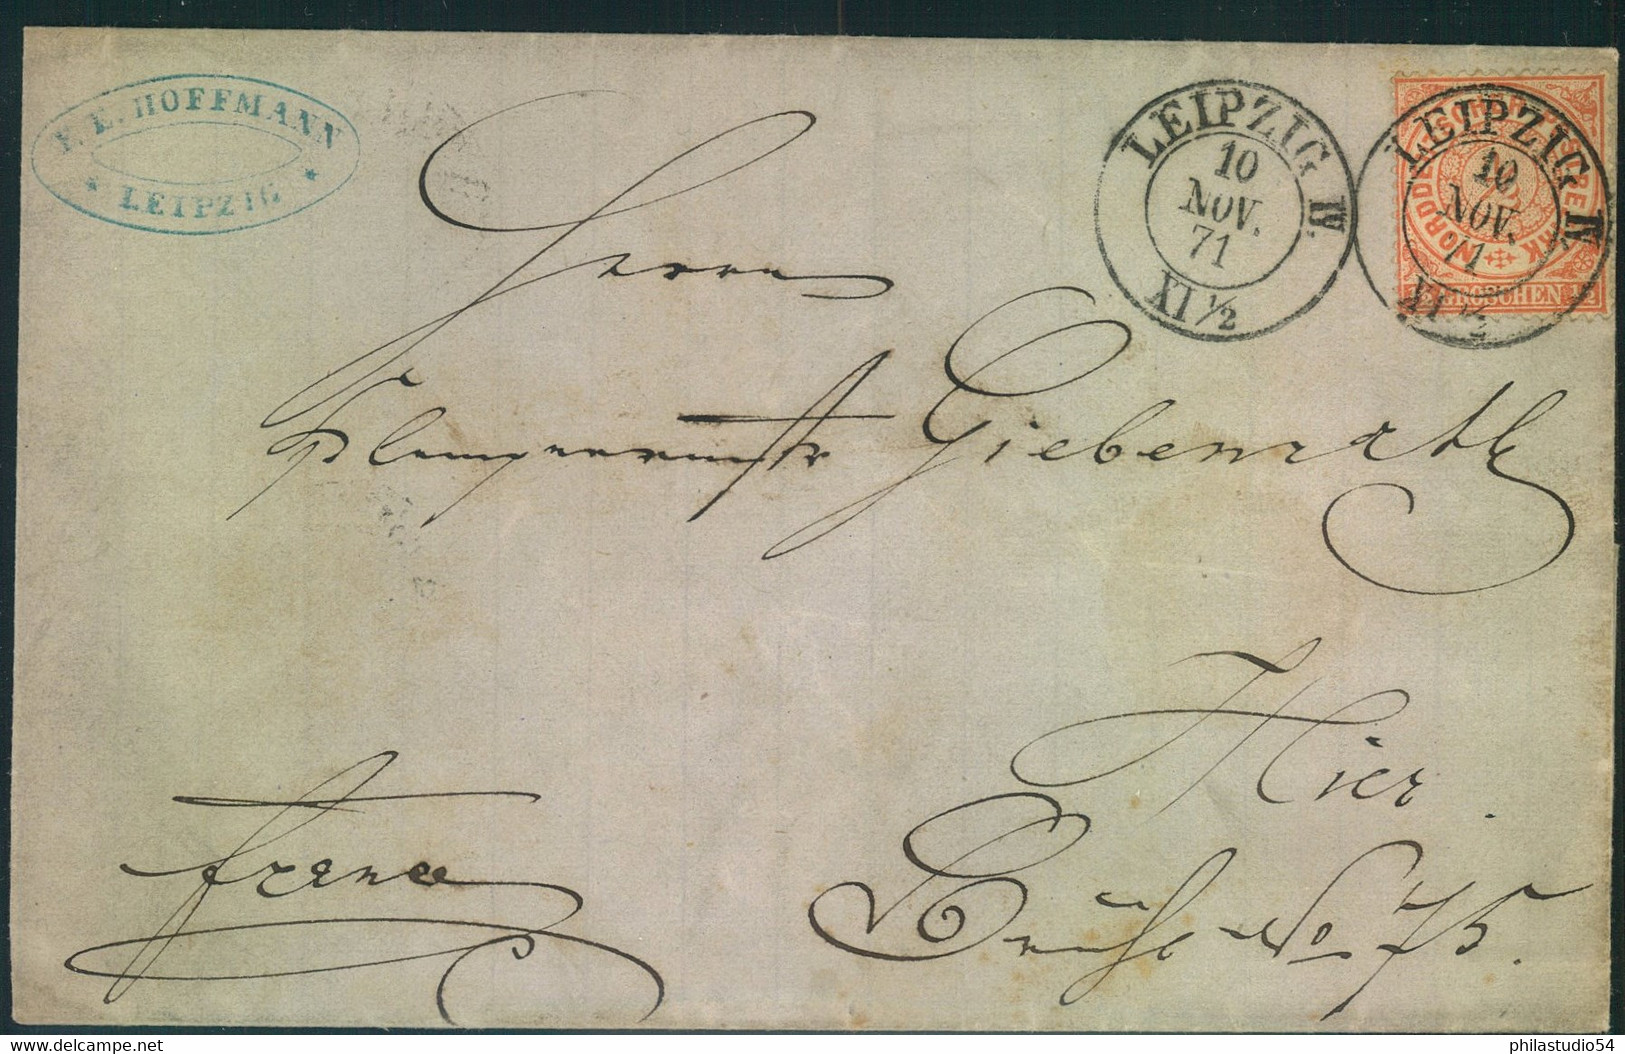 F. E. HOFFMANN
* LEIPZIG *
LEIPZIG IV.
10
NOV.
71
XI ½
LEIPZIG IV.
10
NOV.
71
XI ½
NORDD
½ GROSCHEN ½
Herrn
Klempnermstr Giebenrath
Hier.
franco
Brühl No 75.
www.delcampe.net
philastudio54